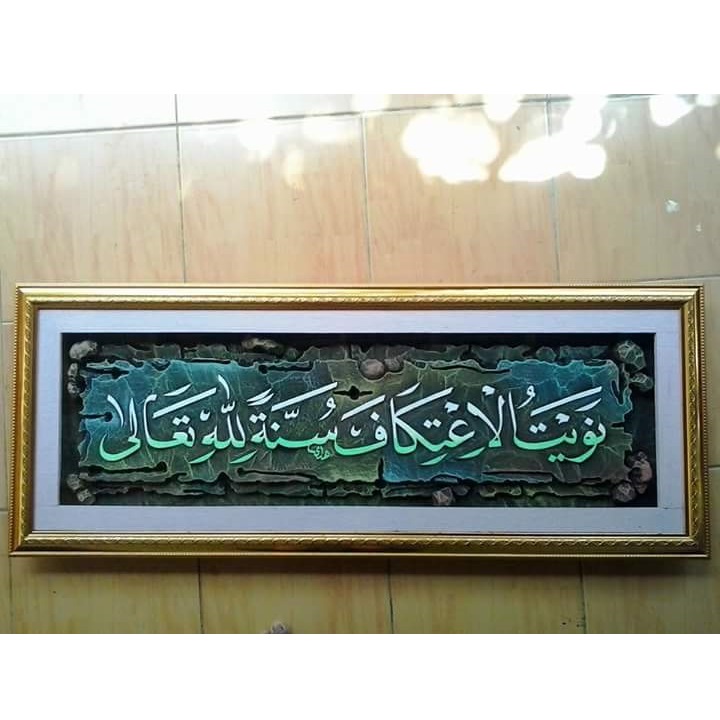 نَوَيْتُ الْاِعْتِكَافَ سُنَّةً لِلّٰهِ تَعَالٰى